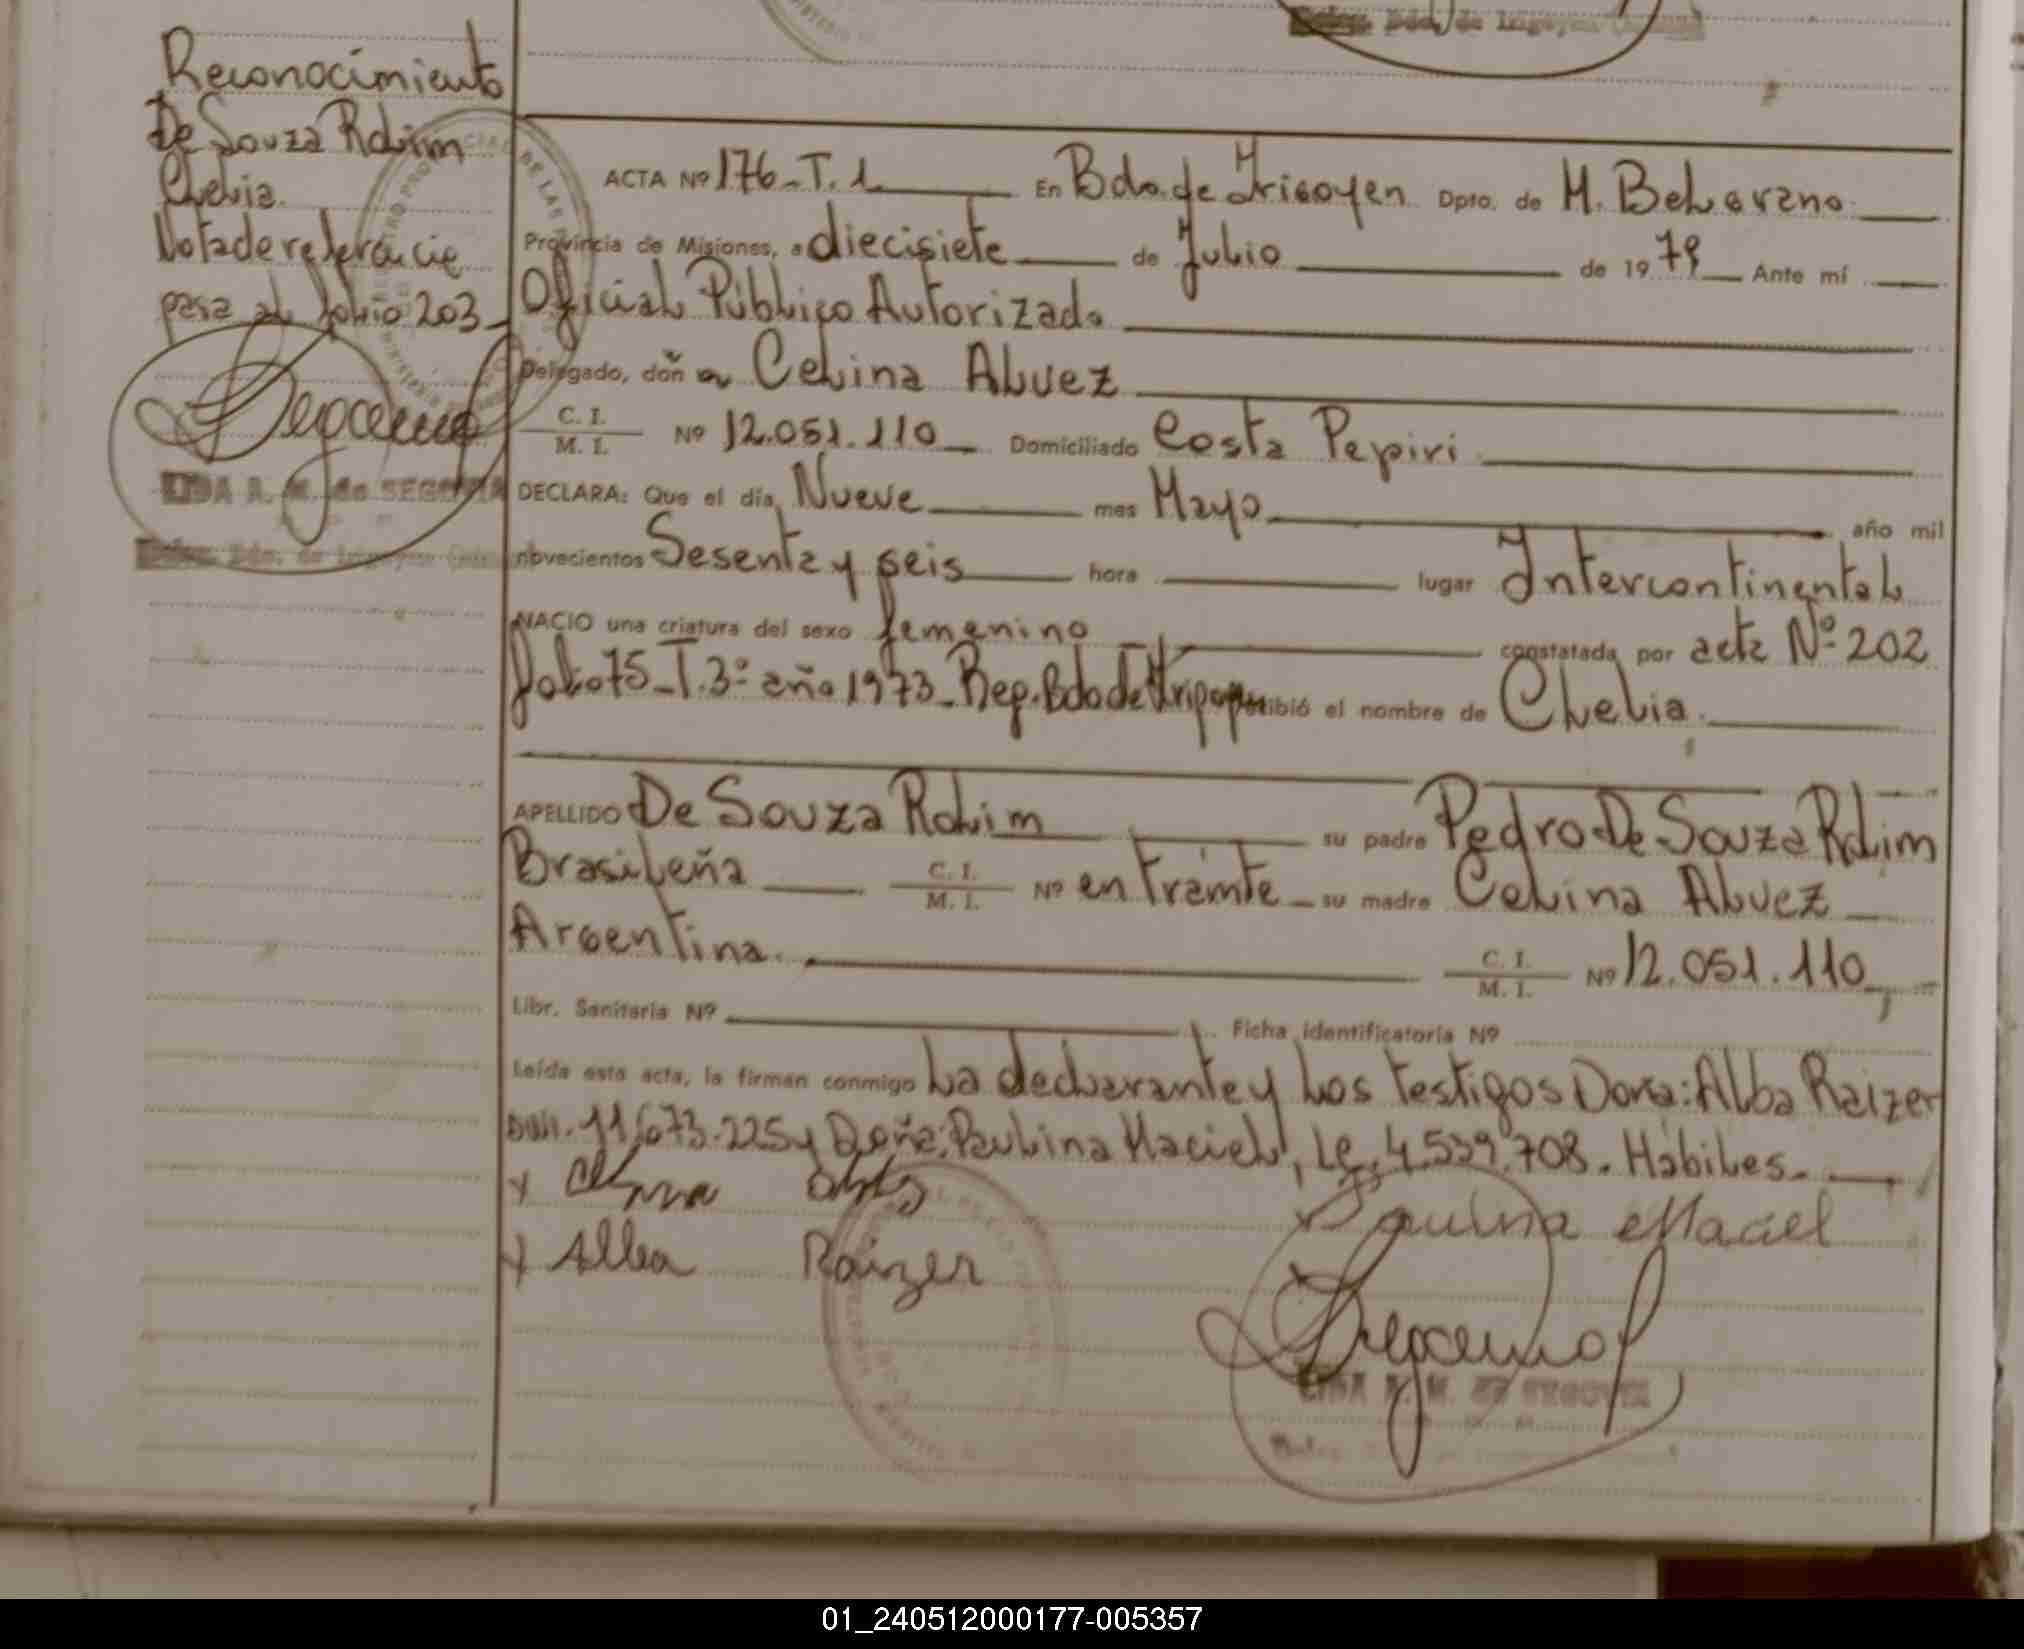 Reconocimiento
De Souza Rolim
Chelia.
Nota de referencia
pasa al folio 203
LIDA A. M. de SEGOVIA
Deleg. Bdo. de Irigoyen
ACTA Nº 176-T. 1 En Bdo. de Irigoyen Dpto. de M. Belgrano
Provincia de Misiones, a diecisiete de Julio de 1979 Ante mí
Oficial Público Autorizado
Delegado, doña Celina Alvez
C. I. / M. I. Nº 12.051.110 Domiciliado Costa Pepiri
DECLARA: Que el día Nueve mes Mayo año mil
novecientos Sesenta y seis hora lugar Intercontinental
NACIO una criatura del sexo femenino constatada por acta Nº 202
folio 75-T. 3º año 1973-Reg. Bdo de Irigoyen recibió el nombre de Chelia.
APELLIDO De Souza Rolim su padre Pedro De Souza Rolim
Brasileña C. I. / M. I. Nº en tramite su madre Celina Alvez
Argentina. C. I. / M. I. Nº 12.051.110
Libr. Sanitaria Nº Ficha identificatoria Nº
Leída esta acta, la firman conmigo La declarante y los testigos Dona: Alba Raizer
DNI. 11.673.225 y Doña: Paulina Maciel, Lc. 4.539.708. Hábiles.
Paulina Maciel
x Alba Raizer
LIDA A. M. de SEGOVIA
01_240512000177-005357